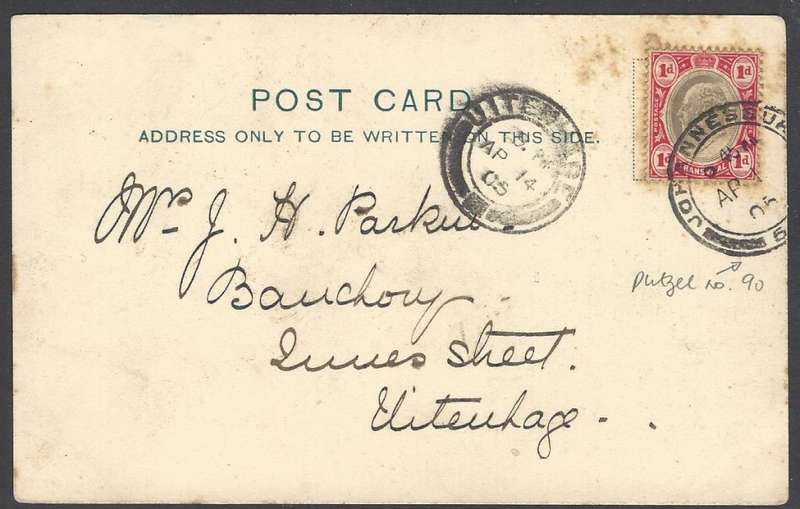 POST CARD
ADDRESS ONLY TO BE WRITTEN ON THIS SIDE.
UITENHAGE
AP 14
05
1d 1d
POSTAGE
1d 1d
TRANSVAAL
JOHANNESBURG
AP
05
5
Putzel no. 90
Mr J. H. Parker
Banchory
Innes Street.
Uitenhage.